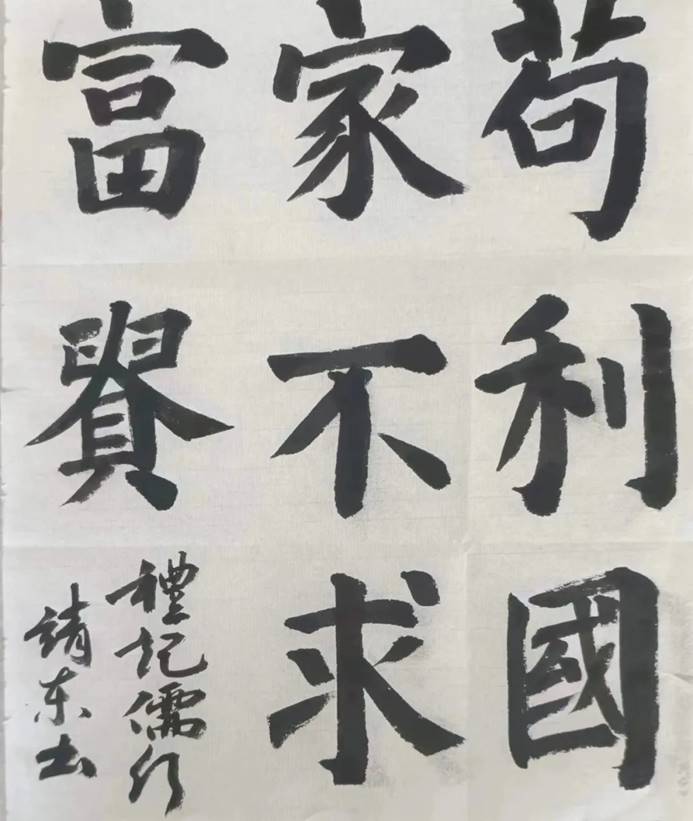 苟利國
家不求
富貴
禮記儒行
靖东书